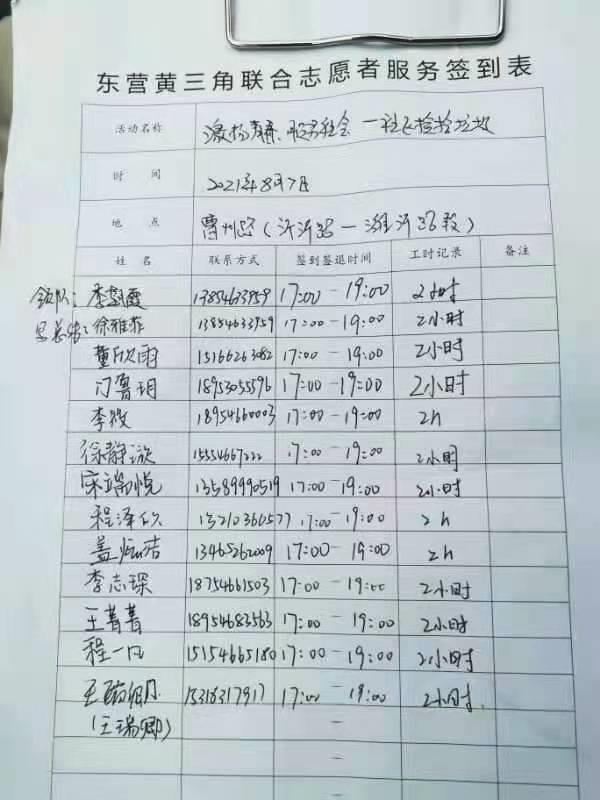 东营黄三角联合志愿者服务签到表
活动名称 激扬青春、服务社会 一 捡拾垃圾
时 间 2021年8月7日
地 点 曹州路(沂河路—潍河路段)
姓 名 联系方式 签到签退时间 工时记录 备注
领队: 李 霞 13854633959 17:00-19:00 2小时
徐雅菲 13854633959 17:00-19:00 2小时
董欣雨 15166263082 17:00-19:00 2小时
门鲁玥 18953055596 17:00-19:00 2小时
李筱 18954660003 17:00-19:00 2h
徐静漩 15554667222 17:00-19:00 2小时
宋瑞悦 13589990519 17:00-19:00 2小时
程泽欣 13210360577 17:00-19:00 2h
盖 洁 13465262009 17:00-19:00 2h
李志琛 18754661503 17:00-19:00 2小时
王菁菁 18954683563 17:00-19:00 2小时
程一凡 15154665180 17:00-19:00 2小时
王 15318317917 17:00-19:00 2小时
(王瑞卿) -
-
-